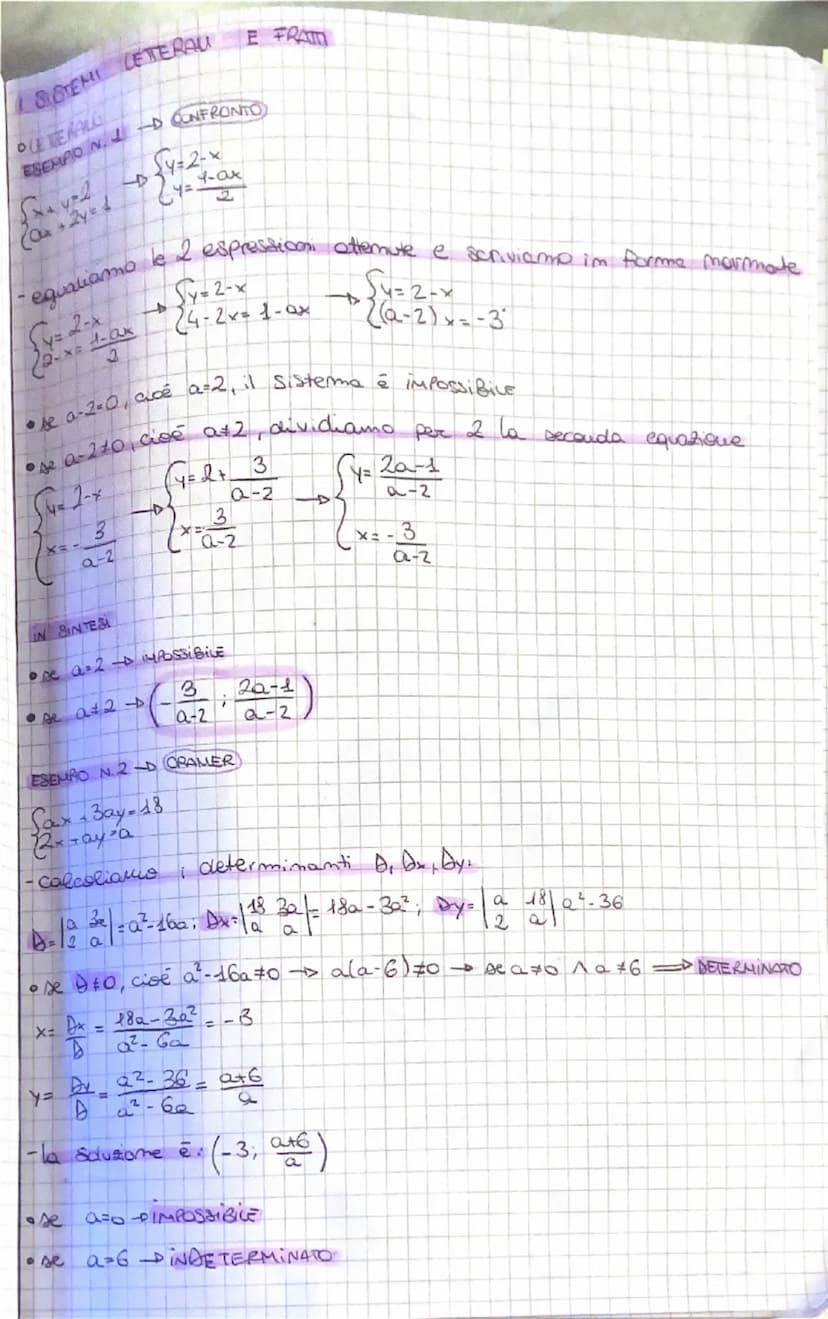 I SISTEMI LETTERALI E FRATTI
• LETTERALI
ESEMPIO N. 1 → CONFRONTO
{x + y = 2 → {y = 2-x
{ax + 2y = 1 {y = 1-ax/2
- eguagliamo le 2 espressioni ottenute e scriviamo in forma normale
{y = 2-x → {y = 2-x → {y = 2-x
{2-x = 1-ax/2 {4-2x = 1-ax {(a-2)x = -3
• se a-2=0, cioè a=2, il sistema è impossibile
• se a-2≠0, cioè a≠2, dividiamo per 2 la seconda equazione
{y = 2-x → {y = 2+ 3/a-2 → {y = 2a-1/a-2
{x = - 3/a-2 {x = - 3/a-2 {x = - 3/a-2
IN SINTESI
• se a=2 → IMPOSSIBILE
• se a≠2 → (- 3/a-2 ; 2a-1/a-2)
ESEMPIO N.2 → CRAMER
{ax + 3ay = 18
{2x + ay = a
- calcoliamo i determinanti D, Dx, Dy.
D = |a 3a| = a²-16a; Dx = |18 3a| = 18a - 3a²; Dy = |a 18| a² - 36
|2 a| |a a| |2 a|
• se D≠0, cioè a²-16a≠0 → a(a-6)≠0 → se a≠0 ∧ a≠6 ⟹ DETERMINATO
x = Dx/D = 18a-3a²/a²-6a = -3
y = Dy/D = a²-36/a²-6a = a+6/a
- la soluzione è: (-3; a+6/a)
• se a=0 → IMPOSSIBILE
• se a=6 → INDETERMINATO